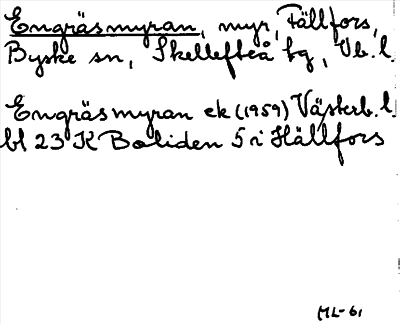 Engräsmyran, myr, Fällfors,
Byske sn, Skellefteå tg, Vb. l.
Engräsmyran ek (1959) Västerb. l.
bl 23 K Boliden 5 i Hällfors
ML-61